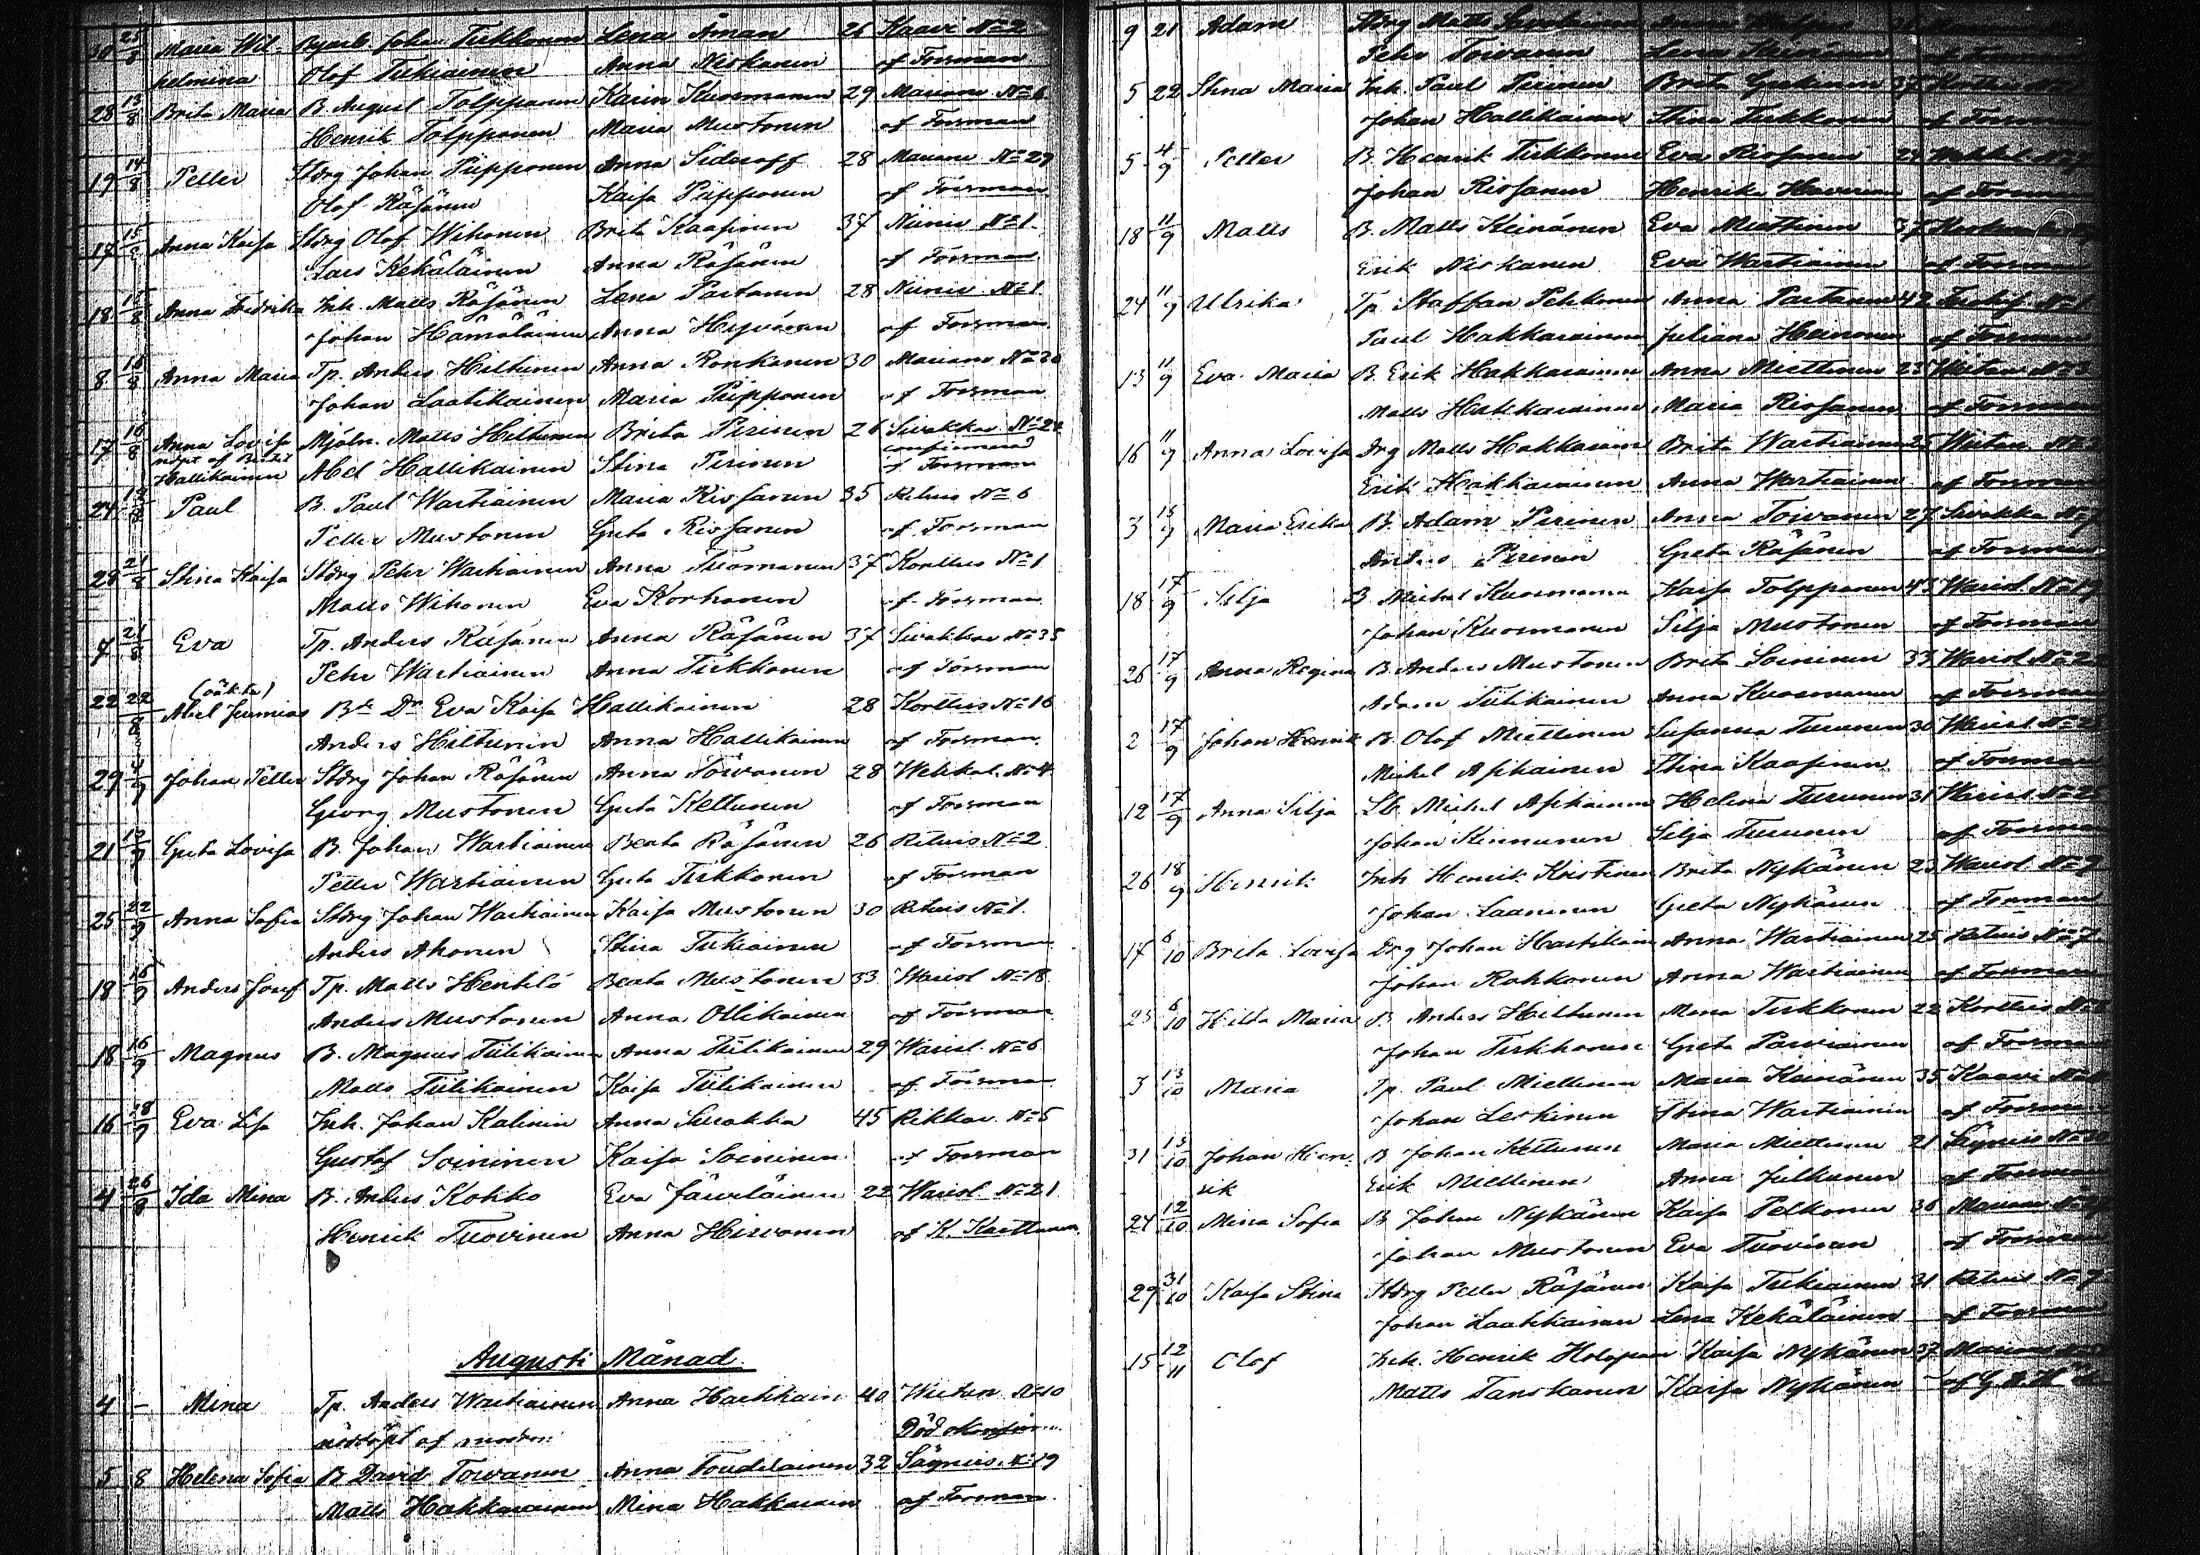 30 25/8 Maria Wil- Byarb. Joha. Tirkkonen Lena Åman 26 Kaavi No 2
helmina Olof Tukiainen Anna Niskanen af Forsman
28 13/8 Brita Maria B. August Tolpponen Karin Kuosmanen 29 Marian No 6
Henrik Tolpponen Maria Mustonen af Forsman
19 14/8 Petter Stbrg Johan Piipponen Anna Sidoroff 28 Marian No 29
Olof Räsänen Kaisa Piipponen af Forsman
17 15/8 Anna Kaisa Stbrg Olof Wihonen Brita Kaasinen 37 Niiniv No 1
Lars Kekäläinen Anna Räsänen af Forsman
18 15/8 Anna Fredrika Inh. Matts Räsänen Lena Partanen 28 Niiniv No 1
Johan Hämäläinen Anna Hyvönen af Forsman
8 Anna Maria Tp. Anders Hiltunen Anna Ronkanen 30 Marian No 20
Johan Laatikainen Maria Piipponen af Forsman
17 16/8 Anna Lovisa Mjöln. Matts Hiltunen Brita Pirinen 26 Sivakka No 24
Hallikainen Abel Hallikainen Stina Pirinen confirmerad af Forsman
24 Paul B. Paul Wartiainen Maria Rissanen 35 Ritnis No 6
Petter Mustonen Greta Rissanen af Forsman
28 21/8 Stina Kaisa Stbrg Pehr Wartiainen Anna Tuomanen 37 Kortteis No 1
Matts Wihonen Eva Korhonen af Forsman
7 21/8 Eva Tp. Anders Räsänen Anna Räsänen 37 Sivakka No 35
Pehr Wartiainen Anna Tirkkonen af Forsman
(oäkta)
22 22/8 Abel Jeremias Bde Dr Eva Kaisa Hallikainen 28 Kortteis No 16
Anders Hiltunen Anna Hallikainen af Forsman
29 4/9 Johan Petter Stbrg Johan Räsänen Anna Toivanen 28 Wehkal. No 4
Georg Mustonen Greta Kettunen af Forsman
21 Greta Lovisa B. Johan Wartiainen Beata Räsänen 26 Ritnis No 2
Petter Wartiainen Greta Tirkkonen af Forsman
25 22/9 Anna Sofia Stbrg Johan Wartiainen Kaisa Mustonen 30 Ritnis No 1
Anders Ahonen Stina Tukiainen af Forsman
18 16/9 Anders Josef Tp. Matts Henttilä Beata Mustonen 33 Warisl No 18
Anders Mustonen Anna Ollikainen af Forsman
18 16/9 Magnus B. Magnus Tiilikainen Anna Tiilikainen 29 Warisl No 6
Matts Tiilikainen Kaisa Tiilikainen af Forsman
16 18/9 Eva Lisa Inh. Johan Kalinin Anna Sivakka 45 Rikkav. No 5
Gustaf Soininen Kaisa Soininen af Forsman
4 26/8 Ida Mina B. Anders Kokko Eva Jäntiläinen 22 Warisl No 21
Henrik Tuovinen Anna Hirvonen af K. Karttunen
Augusti Månad.
4 - Mina Tp. Anders Wartiainen Anna Hartikain 40 Wiitan No 10
nöddöpt af modren Död okonfirm.
5 8 Helena Sofia B. David Toivanen Anna Toudilainen 32 Säyneis No 19
Matts Hakkarainen Mina Hakkarain af Forsman
9 21 Adam Stbrg Matts
Pehr Toivanen Lena Keinänen af Forsman
5 22 Stina Maria Inh. Paul Pirinen Brita 37
Johan Hallikainen Stina Tirkkonen af Forsman
5 4/9 Petter B. Henrik Tirkkonen Eva Rissanen
Johan Rissanen Henrika Haverinen af Forsman
18 11/9 Matts B. Matts Keinänen Eva Miettinen 37
Erik Niskanen Eva Wartiainen af Forsman
24 11/9 Ulrika Tp. Staffan Pehkonen Anna Partanen 42
Paul Hakkarainen Juliana Heinonen af Forsman
13 11/9 Eva Maria B. Erik Hakkarainen Anna Miettinen 23 Wiitan No
Matts Hakkarainen Maria Rissanen af Forsman
16 11/9 Anna Lovisa Drg Matts Hakkarain Brita Wartiainen 25 Wiitan No
Erik Hakkarainen Anna Wartiainen af Forsman
3 15/9 Maria Erika B. Adam Pirinen Anna Toivanen 27 Sivakka No
Anders Pirinen Greta Räsänen af Forsman
18 17/9 Silja B Michel Kuosmanen Kaisa Tolpponen 43 Warisl No 19
Johan Kuosmanen Silja Mustonen af Forsman
26 17/9 Anna Regina B. Anders Mustonen Brita Soininen 33 Warisl No 2
Adam Tiilikainen Anna Kuosmanen af Forsman
2 17/9 Johan Henrik B. Olof Miettinen Susanna Turunen 30 Warisl No 2
Michel Asikainen Stina Kaasinen af Forsman
12 17/9 Anna Silja Lb. Michel Asikainen Helena Turunen 31 Warisl No 2
Johan Kinnunen Silja Turunen af Forsman
26 18/9 Henrik Inh Henrik Kristinen Brita Nykänen 23 Warisl No 7
Johan Laaninen Greta Nykänen af Forsman
17 6/10 Brita Lovisa Drg Johan Hartikain Anna Wartiainen 25 Ritnis No 7
Johan Rahkonen Anna Wartiainen af Forsman
25 6/10 Hilda Maria B. Anders Hiltunen Mina Tirkkonen 22 Kortteis No
Johan Tirkkonen Greta Parviainen af Forsman
3 13/10 Maria Tp. Paul Miettinen Maria Keinänen 35 Kaavi No
Johan Leskinen Stina Wartiainen af Forsman
31 13/10 Johan Hen- B Johan Kettunen Maria Miettinen 21 Säyneis No 20
rik Erik Miettinen Anna Julkunen af Forsman
24 12/10 Mina Sofia B Johan Nykänen Kaisa Pelkonen 36 Marian No
Johan Mustonen Eva Tuovinen af Forsman
29 31/10 Kaisa Stina Stbrg Petter Räsänen Kaisa Tukiainen 31 Ritnis No 7
Johan Laatikainen Lena Kekäläinen af Forsman
15 12/11 Olof Inh. Henrik Holopain Kaisa Nykänen 37 Marian No
Matts Tanskanen Kaisa Nykänen af G.